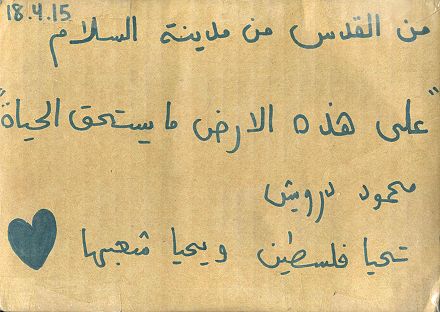 18.4.15
من القدس من مدينة السلام
"على هذه الارض ما يستحق الحياة"
محمود درويش
تحيا فلسطين ويحيا شعبها